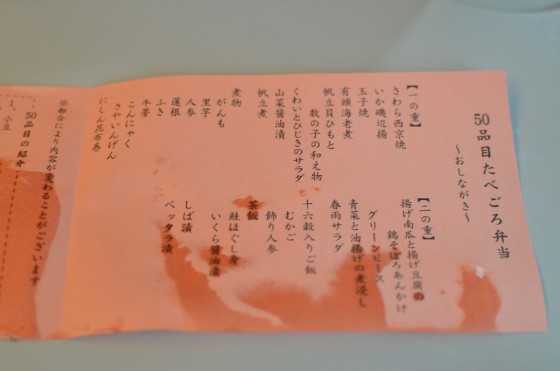 50品目たべごろ弁当
～おしながき～
【一の重】
さわら西京焼
いか磯辺揚
玉子焼
有頭海老煮
帆立貝ひもと
数の子の和え物
くわいとひじきのサラダ
山菜醤油漬
帆立煮
煮物
がんも
里芋
人参
蓮根
ふき
牛蒡
こんにゃく
きやいんげん
にしん昆布巻
【二の重】
揚げ南瓜と揚げ豆腐の
鶏そぼろあんかけ
グリーンピース
青菜と油揚げの煮浸し
春雨サラダ
十六穀入りご飯
むかご
飾り人参
茶飯
鮭ほぐし身
いくら醤油漬
しば漬
ベッタラ漬
※都合により内容が変わることがございます
50品目の紹介
小豆